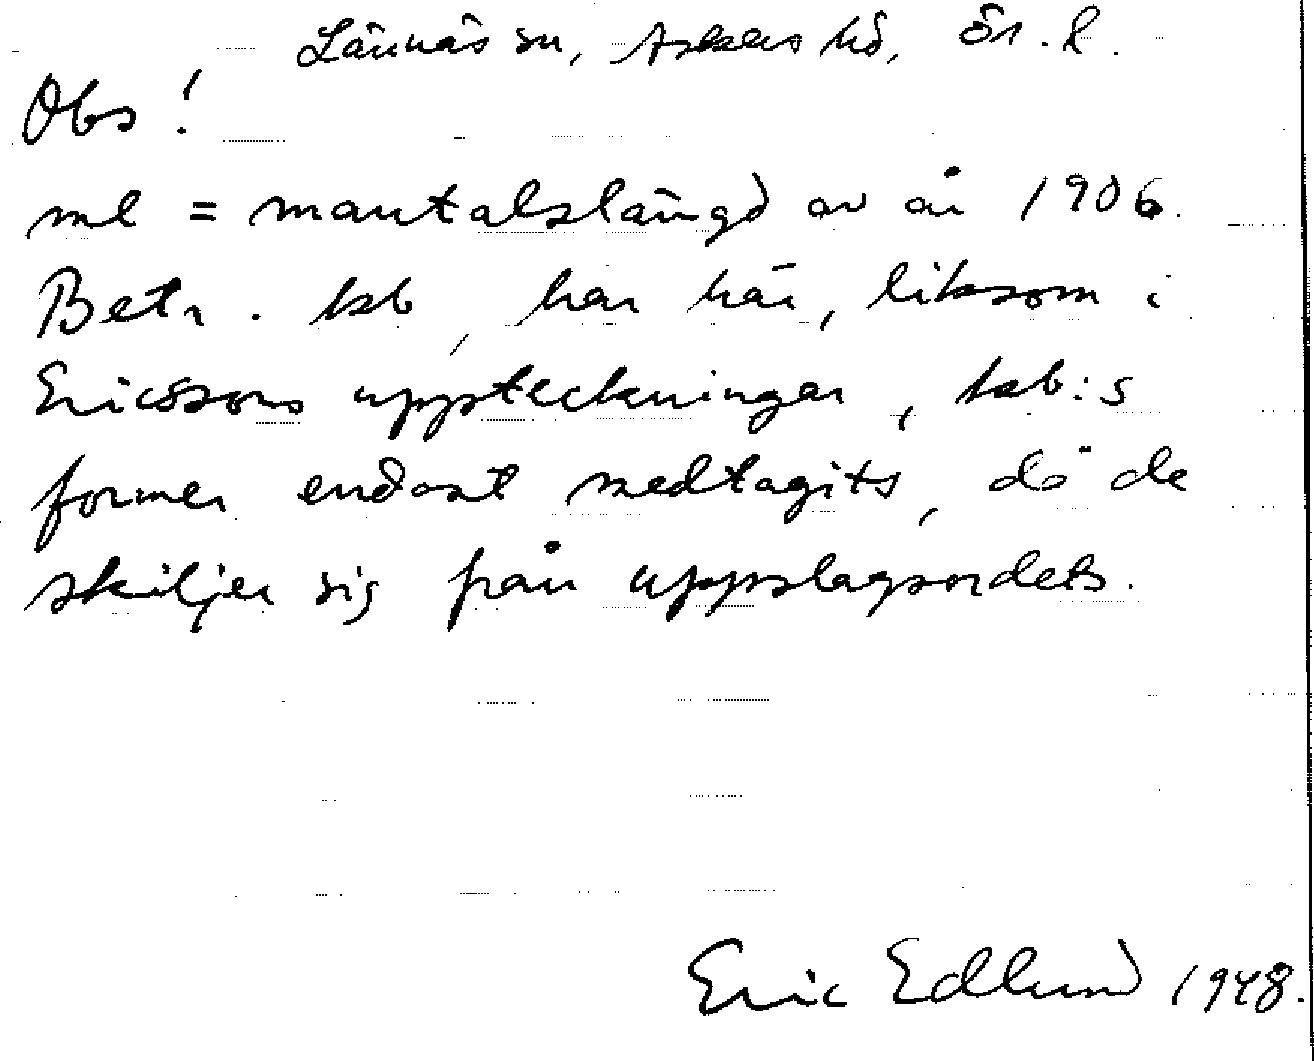 Lännäs sn, Askers hd, Ör. l.
Obs!
ml = mantalslängd av år 1906.
Betr. ksb, har här, liksom i
Ericssons uppteckningar, ksb:s
former endast medtagits, då de
skiljer sig från uppslagsordets.
Eric Edlund 1948.